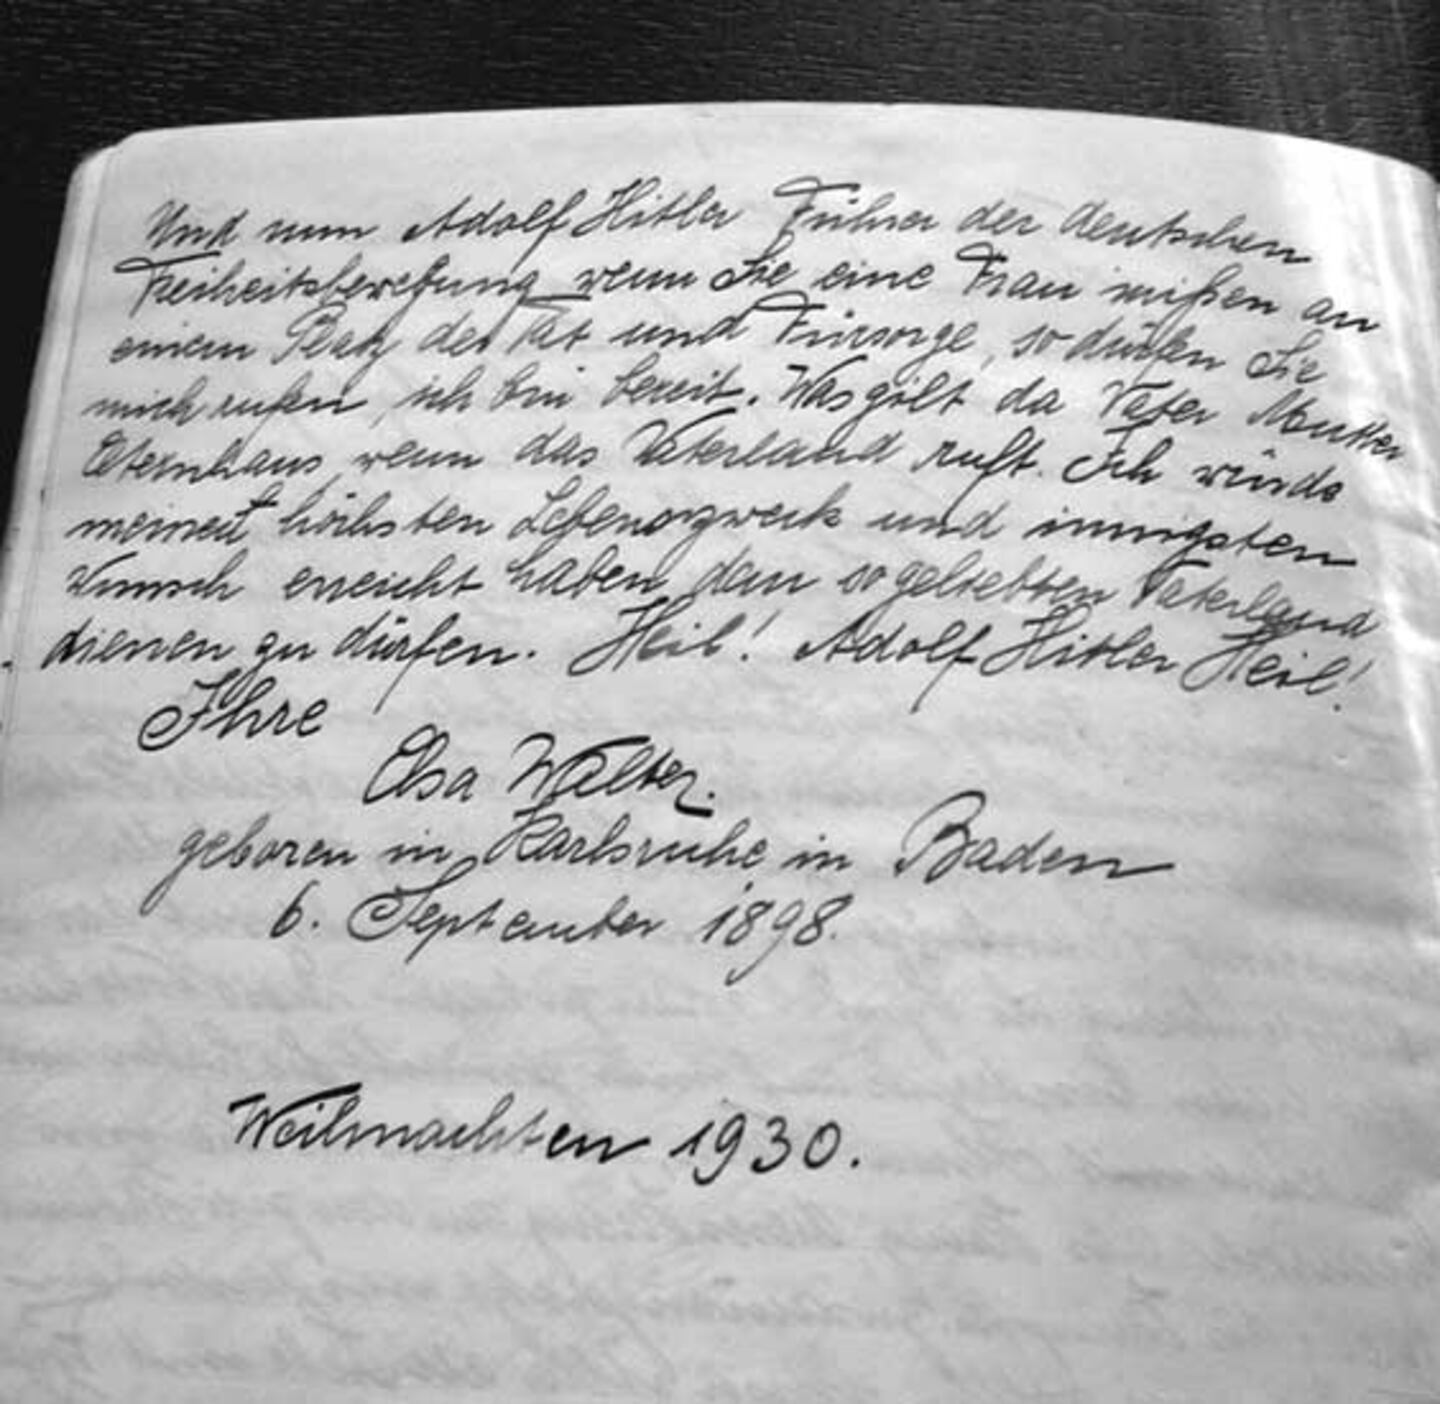 Und nun Adolf Hitler Führer der deutschen
Freiheitsbewegung wenn Sie eine Frau mißen an
einem Platz der Tat und Fürsorge, so dürfen Sie
mich rufen, ich bin bereit. Was gilt da Vater Mutter
Elternhaus, wenn das Vaterland ruft. Ich würde
meinen höchsten Lebenszweck und innigsten
Wunsch erreicht haben, dem so geliebten Vaterland
dienen zu dürfen. Heil! Adolf Hitler Heil!
Ihre
Elsa Walter.
geboren in Karlsruhe in Baden
6. September 1898.
Weihnachten 1930.